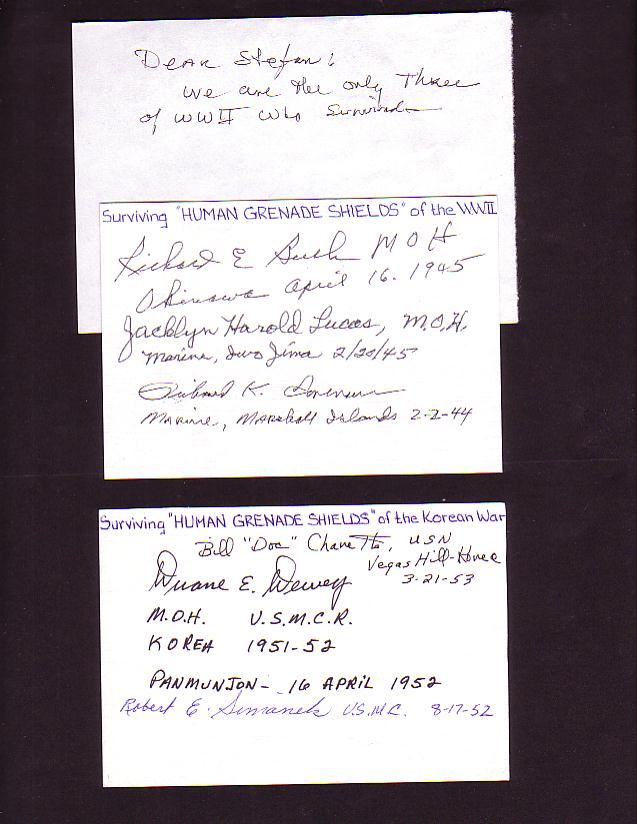 Dear Stefan:
We are the only Three
of WWII who Survived
Surviving "HUMAN GRENADE SHIELDS" of the WWII
Richard E Bush M O H
Okinawa April 16. 1945
Jacklyn Harold Lucas, M.O.H.
Marine, Iwo Jima 2/20/45
Richard K. Sorenson
Marine, Marshall Islands 2-2-44
Surviving "HUMAN GRENADE SHIELDS" of the Korean War
Bill "Doc" Charette, USN
Vegas Hill-Korea
3-21-53
Duane E. Dewey
M.O.H. U.S.M.C.R.
KOREA 1951-52
PANMUNJON - 16 APRIL 1952
Robert E. Simanek U.S.M.C. 8-17-52